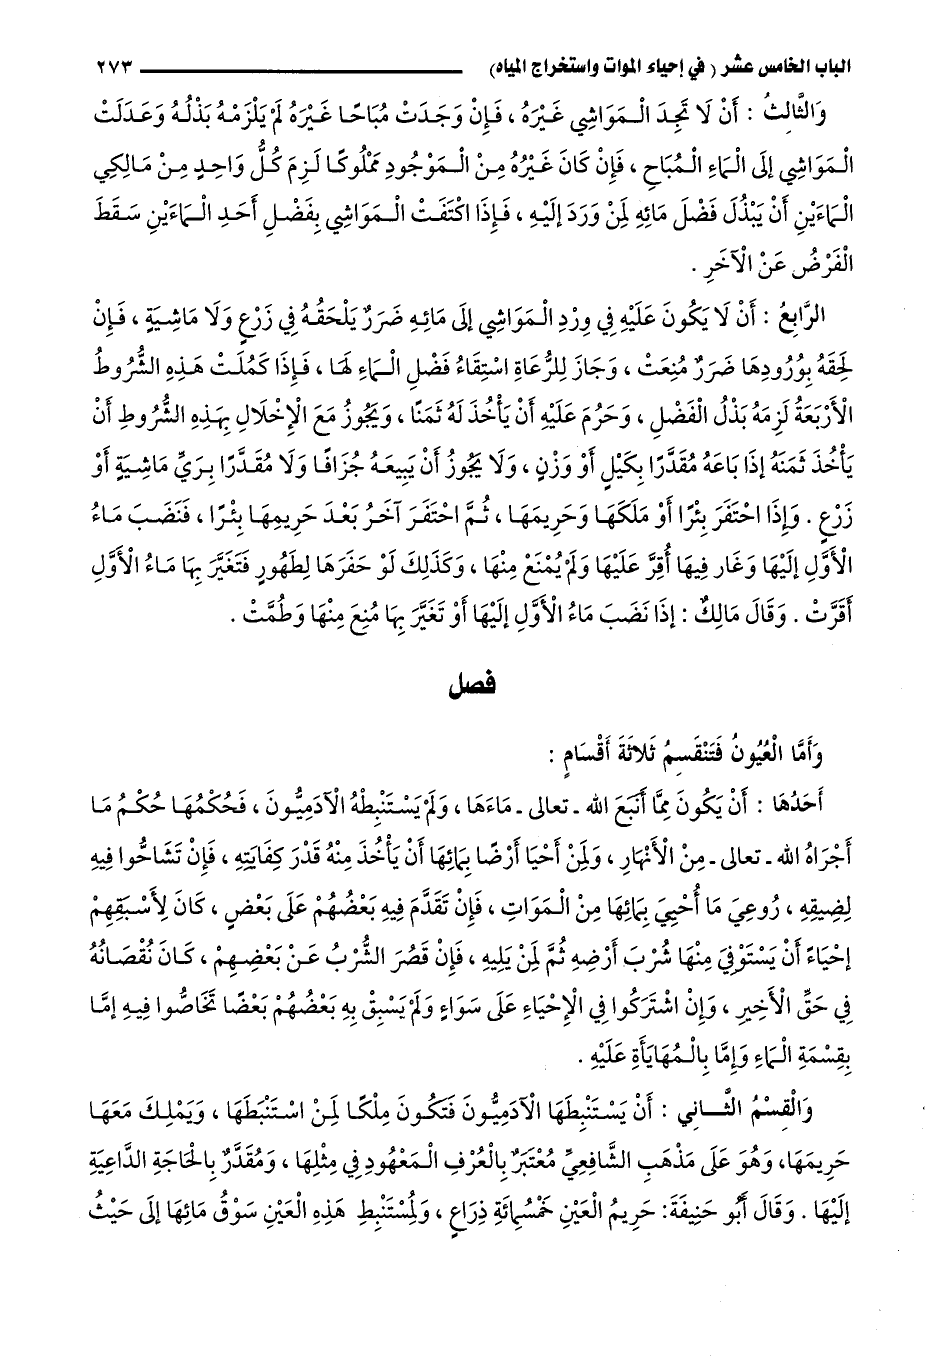 الباب الخامس عشر ( في إحياء الموات واستخراج المياه) ٢٧٣
وَالثَّالِثُ : أَنْ لَا تَجِدَ الْمَوَاشِي غَيْرَهُ ، فَإِنْ وَجَدَتْ مُبَاحًا غَيْرَهُ لَمْ يَلْزَمْهُ بَذْلُهُ وَعَدَلَتْ
الْمَوَاشِي إلَى الْمَاءِ الْمُبَاحِ ، فَإِنْ كَانَ غَيْرُهُ مِنْ الْمَوْجُودِ مَمْلُوكًا لَزِمَ كُلُّ وَاحِدٍ مِنْ مَالِكِي
الْمَاءَيْنِ أَنْ يَبْذُلَ فَضْلَ مَائِهِ لِمَنْ وَرَدَ إلَيْهِ ، فَإِذَا اكْتَفَتْ الْمَوَاشِي بِفَضْلِ أَحَدِ الْمَاءَيْنِ سَقَطَ
الْفَرْضُ عَنْ الْآخَرِ .
الرَّابِعُ : أَنْ لَا يَكُونَ عَلَيْهِ فِي وِرْدِ الْمَوَاشِي إلَى مَائِهِ ضَرَرٌ يَلْحَقُهُ فِي زَرْعٍ وَلَا مَاشِيَةٍ ، فَإِنْ
لَحِقَهُ بِوُرُودِهَا ضَرَرٌ مُنِعَتْ ، وَجَازَ لِلرُّعَاةِ اسْتِقَاءُ فَضْلِ الْمَاءِ لَهَا ، فَإِذَا كَمُلَتْ هَذِهِ الشُّرُوطُ
الْأَرْبَعَةُ لَزِمَهُ بَذْلُ الْفَضْلِ ، وَحَرُمَ عَلَيْهِ أَنْ يَأْخُذَ لَهُ ثَمَنًا ، وَيَجُوزُ مَعَ الْإِخْلَالِ بِهَذِهِ الشُّرُوطِ أَنْ
يَأْخُذَ ثَمَنَهُ إذَا بَاعَهُ مُقَدَّرًا بِكَيْلٍ أَوْ وَزْنٍ ، وَلَا يَجُوزُ أَنْ يَبِيعَهُ جُزَافًا وَلَا مُقَدَّرًا بِرَيِّ مَاشِيَةٍ أَوْ
زَرْعٍ . وَإِذَا احْتَفَرَ بِئْرًا أَوْ مَلَكَهَا وَحَرِيمَهَا ، ثُمَّ احْتَفَرَ آخَرُ بَعْدَ حَرِيمِهَا بِئْرًا ، فَنَضَبَ مَاءُ
الْأَوَّلِ إلَيْهَا وَغَار فِيهَا أُقِرَّ عَلَيْهَا وَلَمْ يُمْنَعْ مِنْهَا ، وَكَذَلِكَ لَوْ حَفَرَهَا لِطَهُورٍ فَتَغَيَّرَ بِهَا مَاءُ الْأَوَّلِ
أُقِرَّتْ . وَقَالَ مَالِكٌ : إذَا نَضَبَ مَاءُ الْأَوَّلِ إلَيْهَا أَوْ تَغَيَّرَ بِهَا مُنِعَ مِنْهَا وَطُمَّتْ .
فصل
وَأَمَّا الْعُيُونُ فَتَنْقَسِمُ ثَلَاثَةَ أَقْسَامٍ :
أَحَدُهَا : أَنْ يَكُونَ مِمَّا أَنْبَعَ الله ـ تعالى ـ مَاءَهَا ، وَلَمْ يَسْتَنْبِطْهُ الْآدَمِيُّونَ ، فَحُكْمُهَا حُكْمُ مَا
أَجْرَاهُ الله ـ تعالى ـ مِنْ الْأَنْهَارِ ، وَلِمَنْ أَحْيَا أَرْضًا بِمَائِهَا أَنْ يَأْخُذَ مِنْهُ قَدْرَ كِفَايَتِهِ ، فَإِنْ تَشَاحُّوا فِيهِ
لِضِيقِهِ ، رُوعِيَ مَا أُحْيِيَ بِمَائِهَا مِنْ الْمَوَاتِ ، فَإِنْ تَقَدَّمَ فِيهِ بَعْضُهُمْ عَلَى بَعْضٍ ، كَانَ لِأَسْبَقِهِمْ
إحْيَاءً أَنْ يَسْتَوْفِيَ مِنْهَا شُرْبَ أَرْضِهِ ثُمَّ لِمَنْ يَلِيهِ ، فَإِنْ قَصُرَ الشُّرْبُ عَنْ بَعْضِهِمْ ، كَانَ نُقْصَانُهُ
فِي حَقِّ الْأَخِيرِ ، وَإِنْ اشْتَرَكُوا فِي الْإِحْيَاءِ عَلَى سَوَاءٍ وَلَمْ يَسْبِقْ بِهِ بَعْضُهُمْ بَعْضًا تَحَاصُّوا فِيهِ إمَّا
بِقِسْمَةِ الْمَاءِ وَإِمَّا بِالْمُهَايَأَةِ عَلَيْهِ .
وَالْقِسْمُ الثَّانِي : أَنْ يَسْتَنْبِطَهَا الْآدَمِيُّونَ فَتَكُونَ مِلْكًا لِمَنْ اسْتَنْبَطَهَا ، وَيَمْلِكَ مَعَهَا
حَرِيمَهَا، وَهُوَ عَلَى مَذْهَبِ الشَّافِعِيِّ مُعْتَبَرٌ بِالْعُرْفِ الْمَعْهُودِ فِي مِثْلِهَا ، وَمُقَدَّرٌ بِالْحَاجَةِ الدَّاعِيَةِ
إلَيْهَا . وَقَالَ أَبُو حَنِيفَةَ: حَرِيمُ الْعَيْنِ خَمْسُمِائَةِ ذِرَاعٍ ، وَلِمُسْتَنْبِطِ هَذِهِ الْعَيْنِ سَوْقُ مَائِهَا إلَى حَيْثُ